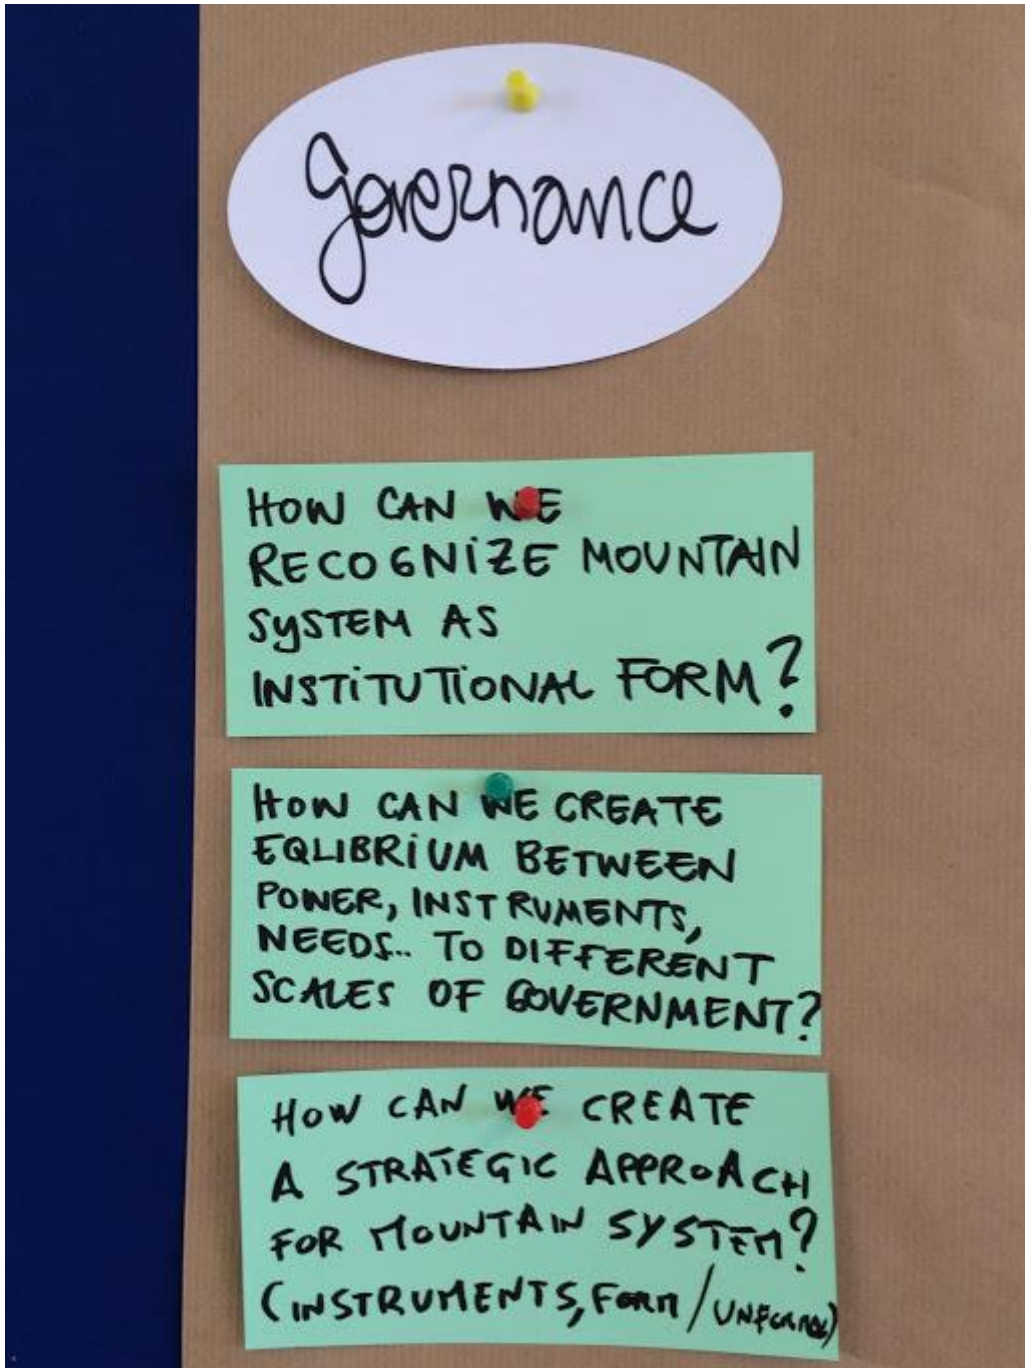 Governance
HOW CAN WE
RECOGNIZE MOUNTAIN
SYSTEM AS
INSTITUTIONAL FORM?
HOW CAN WE CREATE
EQLIBRIUM BETWEEN
POWER, INSTRUMENTS,
NEEDS.. TO DIFFERENT
SCALES OF GOVERNMENT?
HOW CAN WE CREATE
A STRATEGIC APPROACH
FOR MOUNTAIN SYSTEM?
(INSTRUMENTS, FORM/